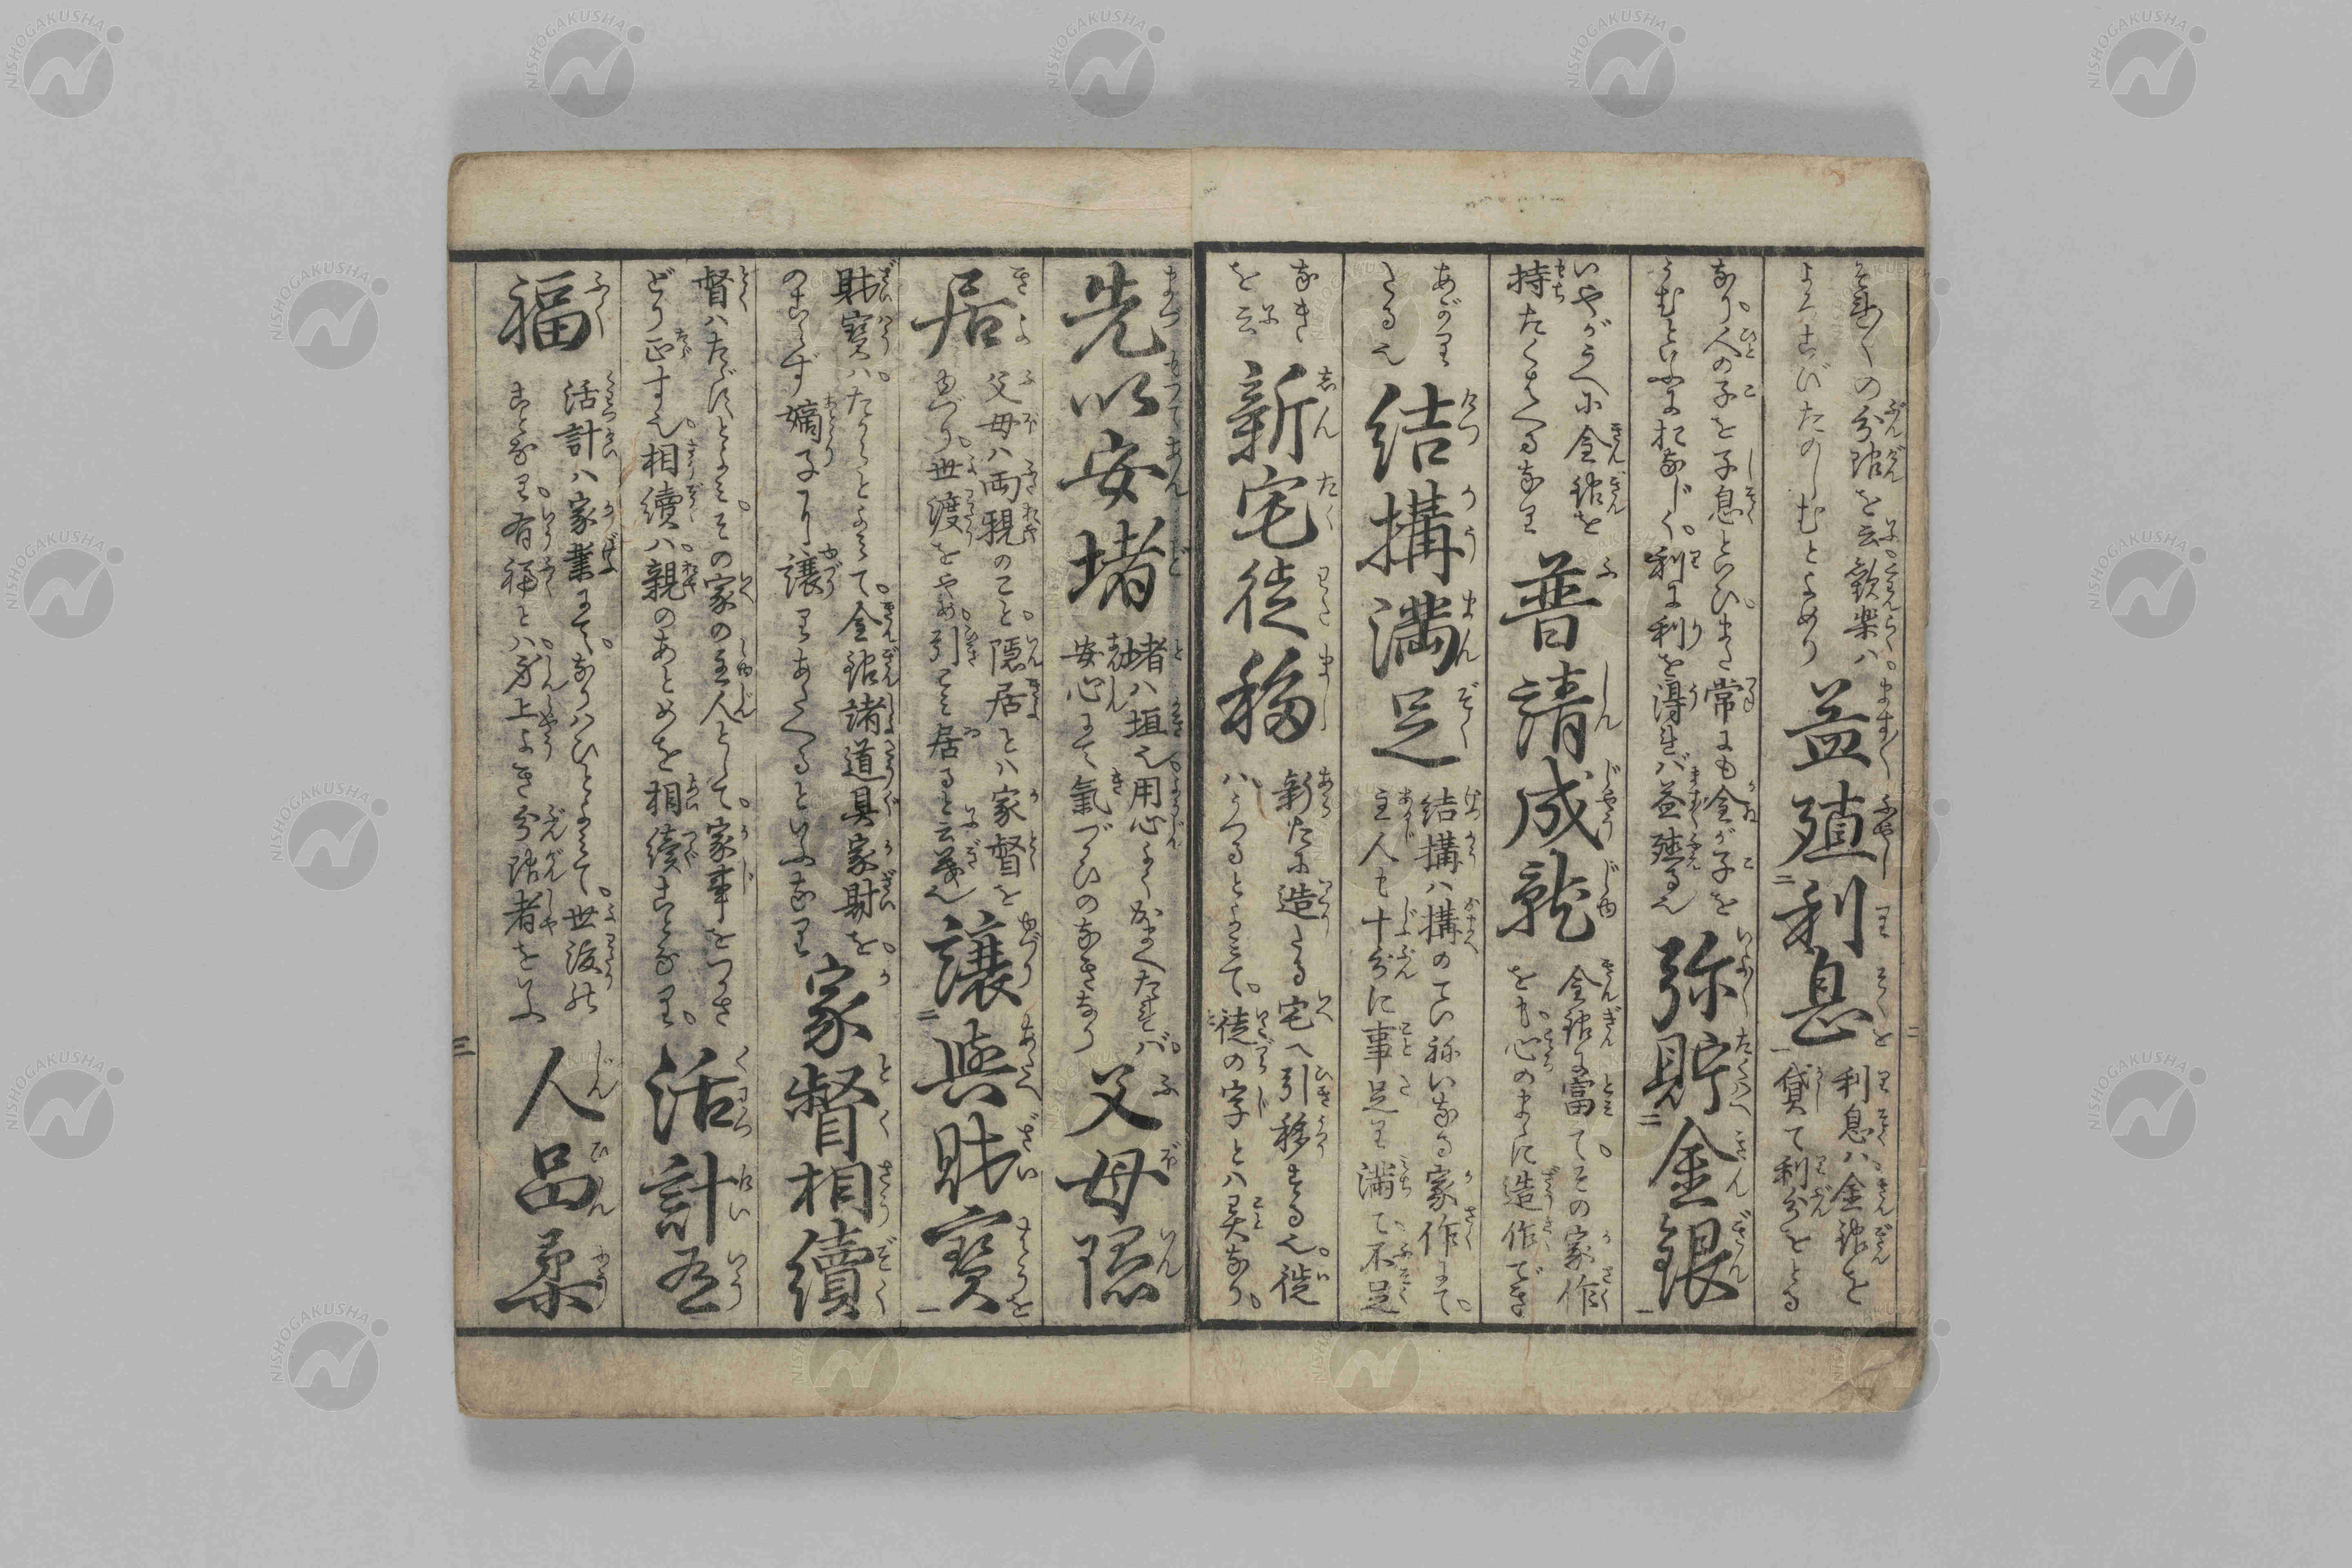 それ〳〵の分限を云。歓楽ハ。
よろこびたのしむとよめり
益殖利息
利息ハ。金銀を
貸て利分をとる
なり。人の子を子息といひ。また常にも金が子を
うむといふにおなじく。利に利を得れバ益殖る也
弥貯金銀
いやがうへに金銀を
持たくはへるなり
普請成就
金銀に富て。その家作
をも。心のまゝに造作でき
あがり
たる也
結搆満足
結搆ハ搆のていねいなる家作にて。
主人も十分に事足り満て。不足
なき
を云
新宅徒移
新たに造たる宅へ引移する也。徙
ハうつるとよみて。徒の字とハ異なり。
先以安堵
堵ハ垣也。用心よくかまへたれバ。
安心にて氣づかひのなきなり
父母隠
居
父母ハ両親のこと。隠居とハ家督を
ゆづり。世渡をやめ。引こみ居ると云義也
譲與財寳
財寳ハ。たからとよみて。金銀諸道具家財を。
のこらず嫡子に譲りあたへるといふなり
家督相續
督ハたゞすとよみ。その家の主人として。家事をつかさ
どり正す也。相續ハ。親のあとめを相續ことなり。
活計有
福
活計ハ家業にて。なりハひとよみて。世渡の
ことなり。有福とハ。身上よき分限者をいふ
人品柔
二
三
NISHOGAKUSHA